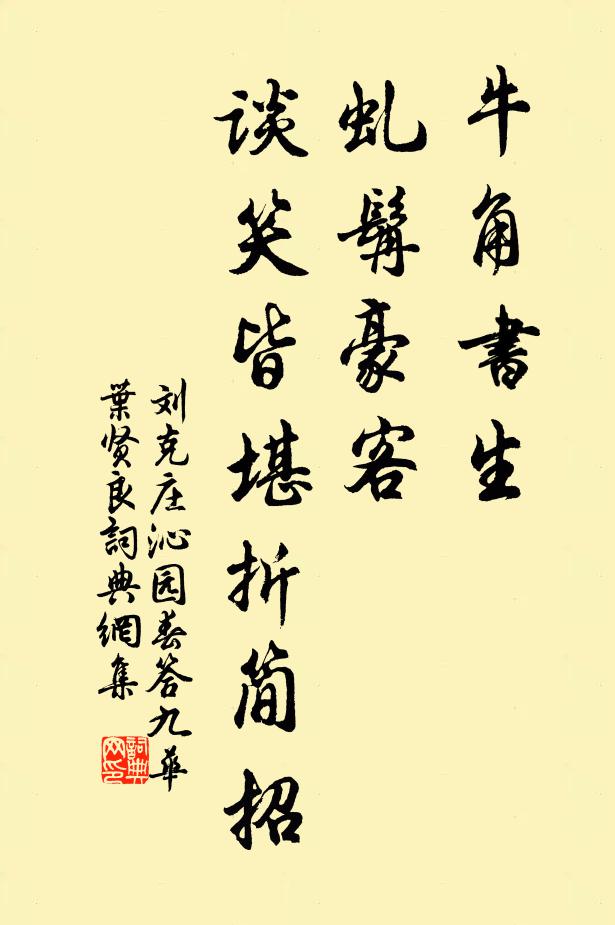 牛角书生
虬髯豪客
谈笑皆堪折简招
刘克庄沁园春答九华
葉贤良詞典網集
詞典
网印